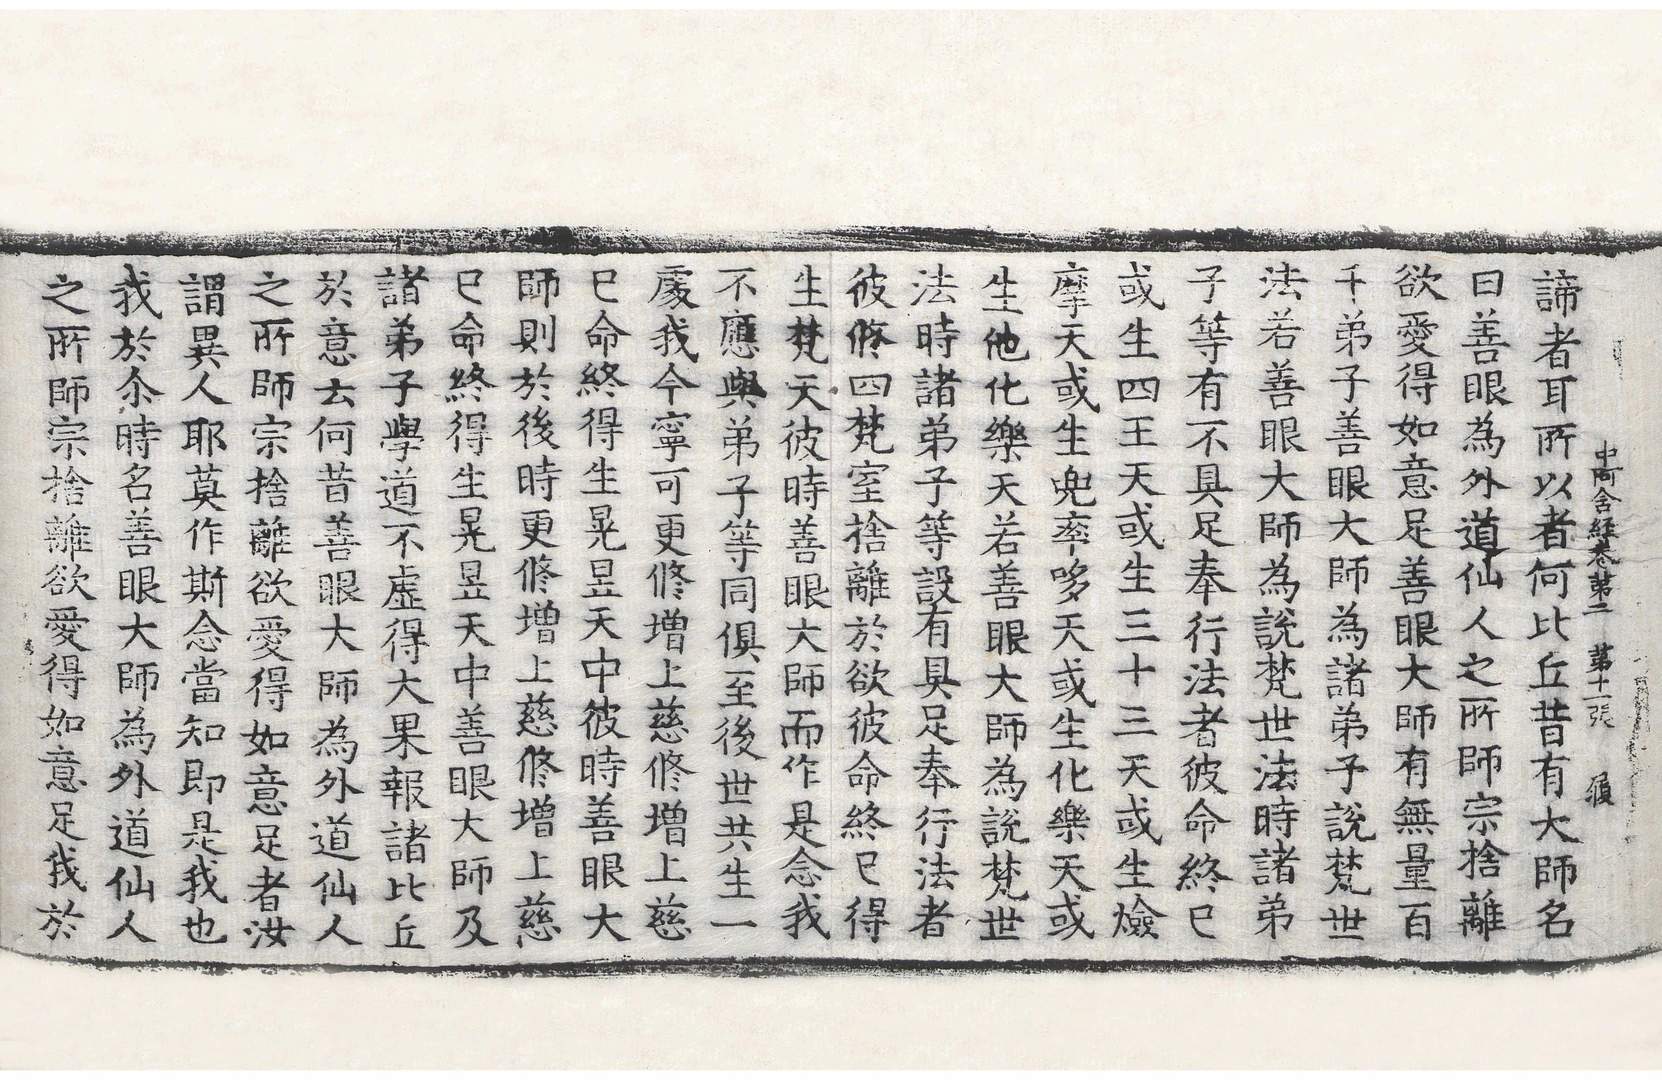 中阿含經卷第二 第十一張 履
諦者耳所以者何比丘昔有大師名
曰善眼為外道仙人之所師宗捨離
欲愛得如意足善眼大師有無量百
千弟子善眼大師為諸弟子說梵世
法若善眼大師為說梵世法時諸弟
子等有不具足奉行法者彼命終已
或生四王天或生三十三天或生㷿
摩天或生兜率哆天或生化樂天或
生他化樂天若善眼大師為說梵世
法時諸弟子等設有具足奉行法者
彼脩四梵室捨離於欲彼命終已得
生梵天彼時善眼大師而作是念我
不應與弟子等同俱至後世共生一
處我今寧可更脩增上慈脩增上慈
已命終得生晃昱天中彼時善眼大
師則於後時更脩增上慈脩增上慈
已命終得生晃昱天中善眼大師及
諸弟子學道不虛得大果報諸比丘
於意云何昔善眼大師為外道仙人
之所師宗捨離欲愛得如意足者汝
謂異人耶莫作斯念當知即是我也
我於尒時名善眼大師為外道仙人
之所師宗捨離欲愛得如意足我於